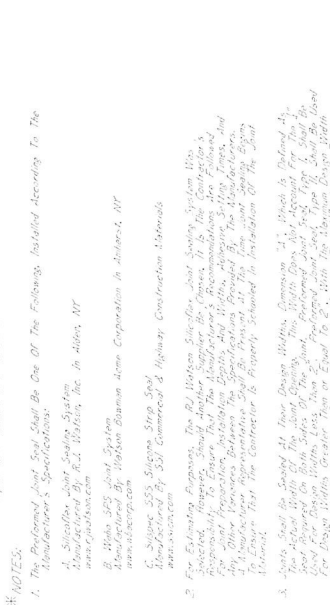 * NOTES:
1. The Preformed Joint Seal Shall Be One Of The Following, Installed According To The
Manufacturer's Specifications:
A. Silicoflex Joint Sealing System
Manufactured By R.J. Watson, Inc. in Alden, NY
www.rjwatson.com
B. Wabo SPS Joint System
Manufactured By Watson Bowman Acme Corporation in Amherst, NY
www.wbacorp.com
C. SSS Silicone Strip Seal
Manufactured By SSI Commercial & Highway Construction Materials
www.ssicm.com
2. For Estimating Purposes, The RJ Watson Silicoflex Joint Sealing System Was
Selected, However, Should Another Supplier Be Chosen, It Is The Contractor's
Responsibility To Ensure That The Manufacturer's Recommendations Are Followed
For Joint Preparation, Installation Depths And Widths, Adhesive Setting Times, And
Any Other Variances Between The Specifications Provided By The Manufacturers.
A Manufacturer Representative Shall Be Present At The Time Joint Sealing Begins
To Ensure That The Contractor Is Properly Schooled In Installation Of The Joint
Material.
3. Joints Shall Be Sealed At Design Widths, Dimension "A", Which Is Defined As
The Width Of The Joint Opening. This Width Does Not Account For The
Required On Both Sides Of The Joint. Preformed Joint Seal, Type I, Shall Be
Used For Design Widths Less Than 2". Preformed Joint Seal, Type II, Shall Be Used
For Design Widths Greater Than Or Equal To 2", With The Maximum Design Width